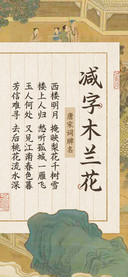 减字木兰花
唐宋词牌名
西楼明月
掩映梨花千树雪
楼上人归
愁听孤城一雁飞
玉人何处
又见江南春色暮
芳信难寻
去后桃花流水深